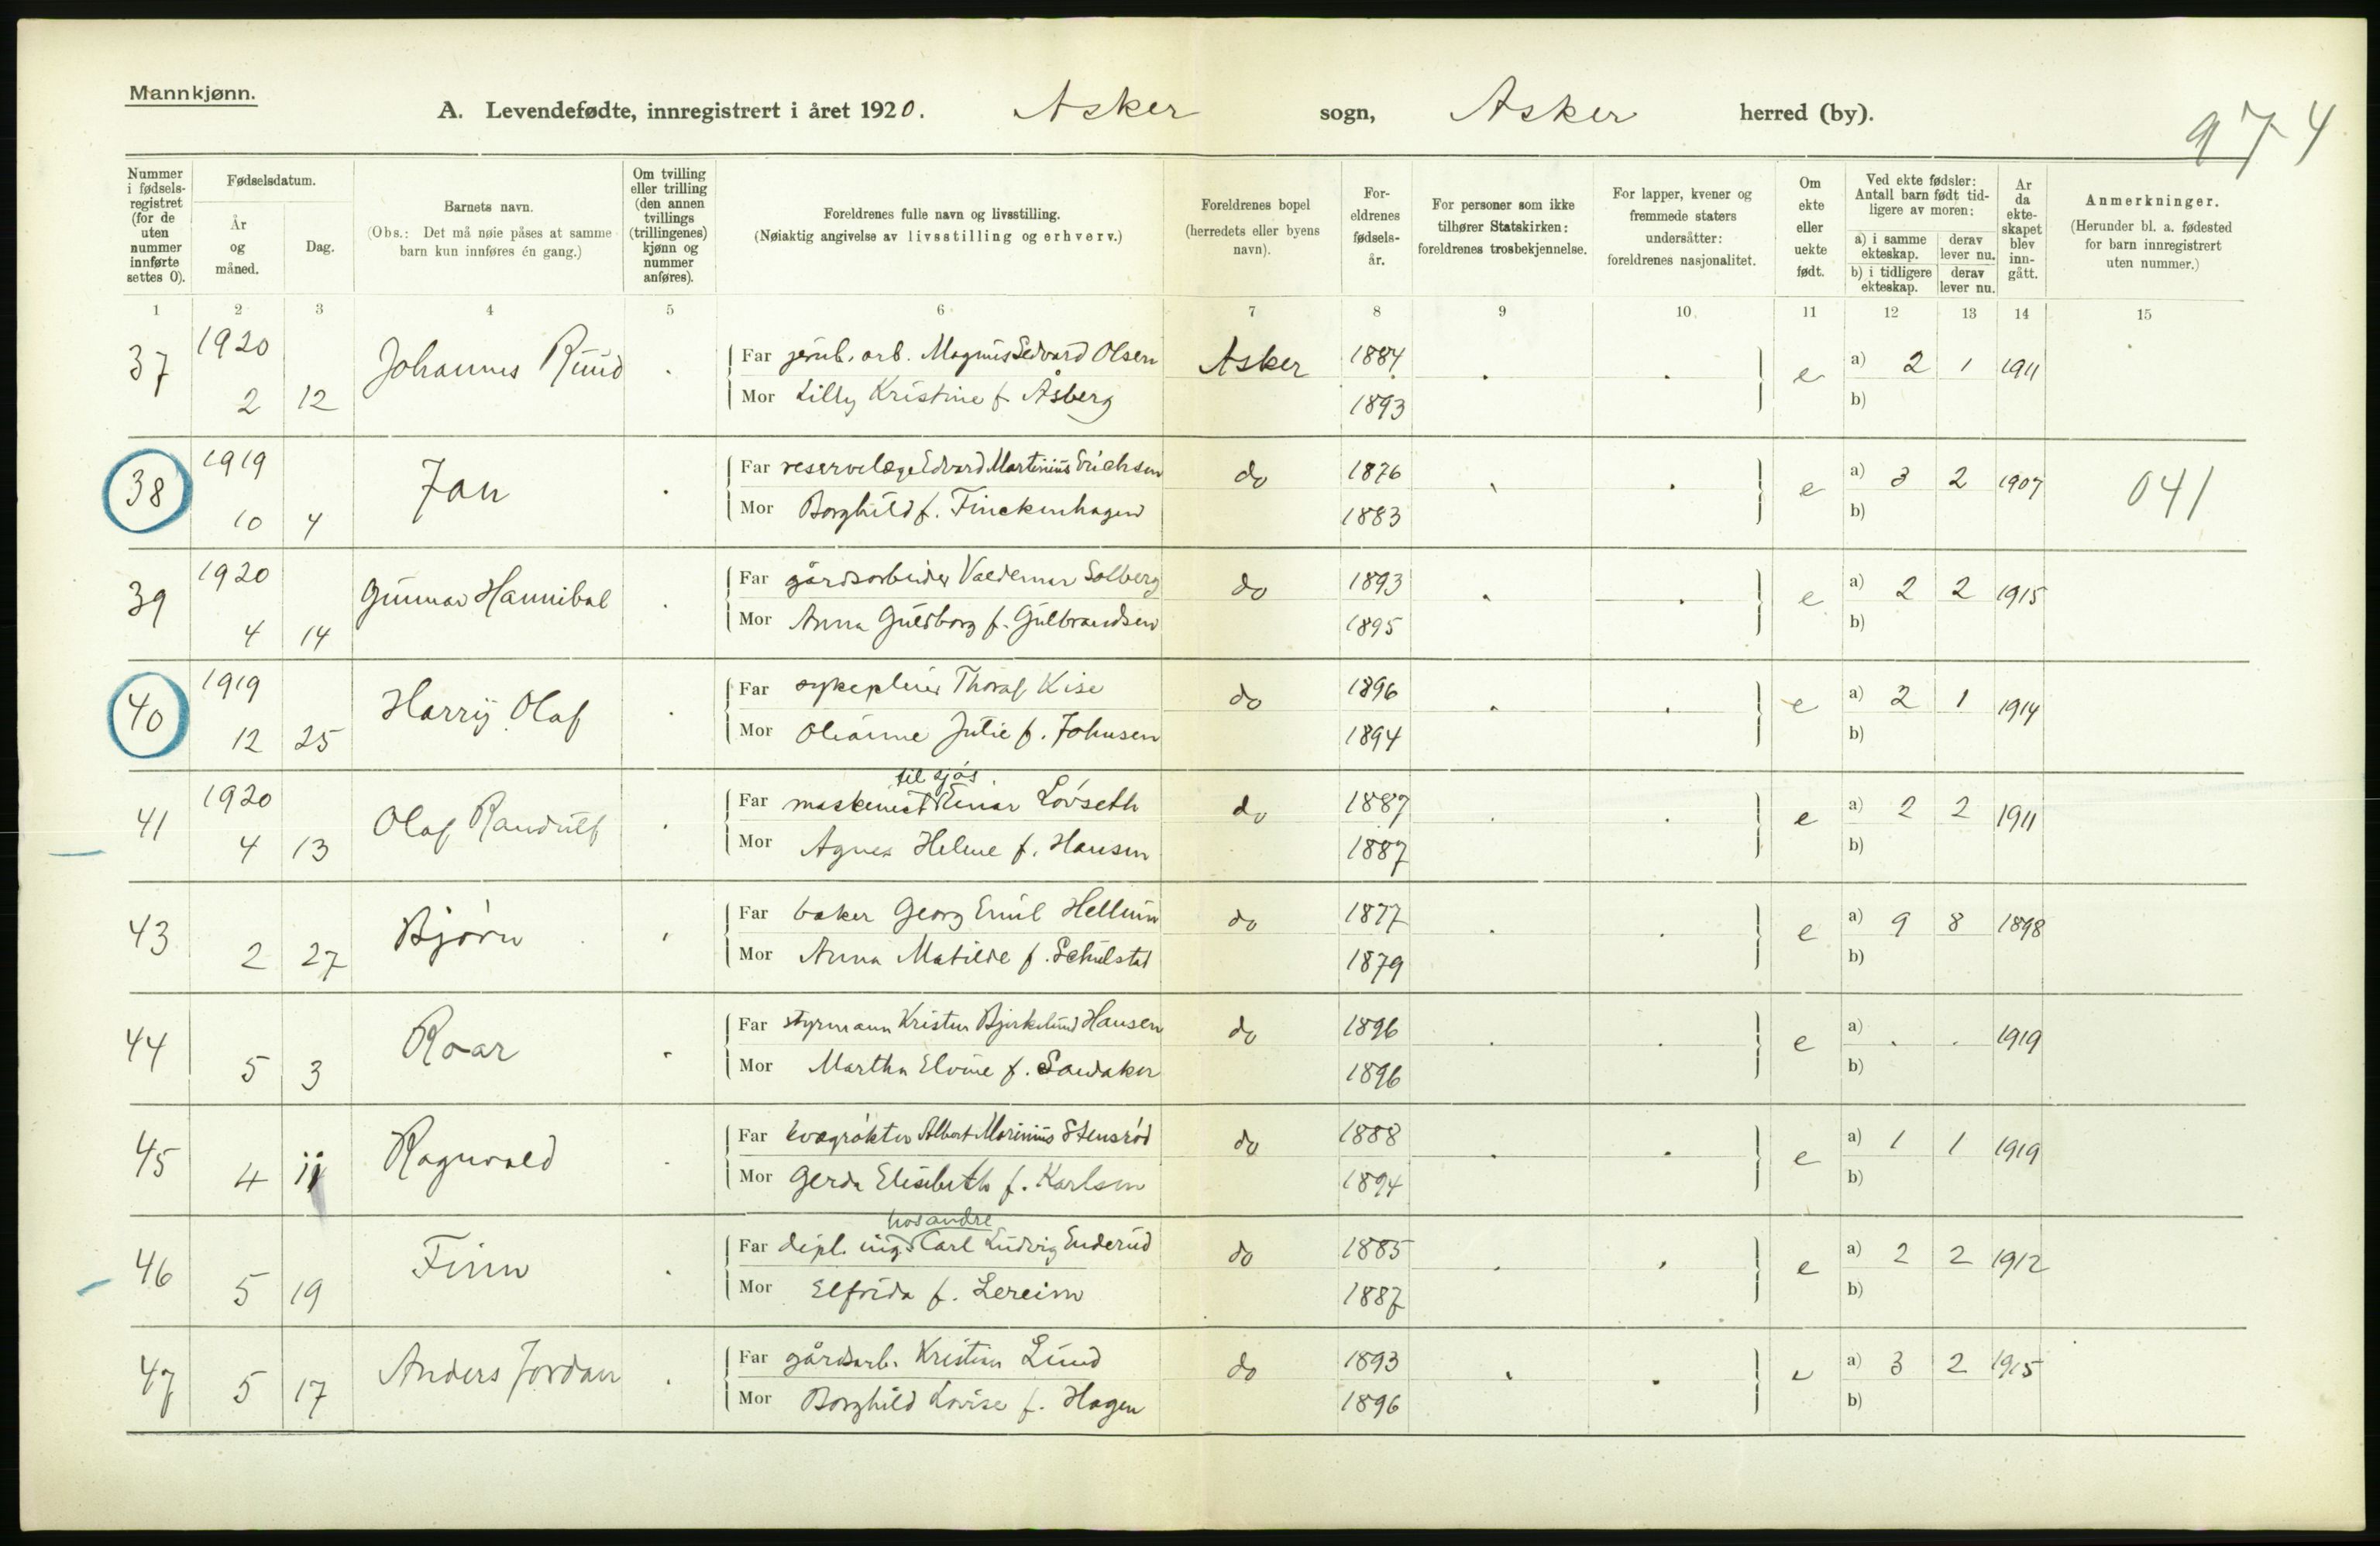 Mannkjønn.
A. Levendefødte, innregistrert i året 1920. Asker sogn, Asker herred (by).
974
Nummer i fødsels-registret (for de uten nummer innførte settes 0).
Fødselsdatum.
År og måned.
Dag.
Barnets navn.
(Obs.: Det må nøie påses at samme barn kun innføres én gang.)
Om tvilling eller trilling (den annen tvillings (trillingenes) kjønn og nummer anføres).
Foreldrenes fulle navn og livsstilling.
(Nøiaktig angivelse av livsstilling og erhverv.)
Foreldrenes bopel (herredets eller byens navn).
For-eldrenes fødsels-år.
For personer som ikke tilhører Statskirken: foreldrenes trosbekjennelse.
For lapper, kvener og fremmede staters undersåtter: foreldrenes nasjonalitet.
Om ekte eller uekte født.
Ved ekte fødsler: Antall barn født tid-ligere av moren:
a) i samme ekteskap. derav lever nu.
b) i tidligere ekteskap. derav lever nu.
Ar da ekte-skapet blev inn-gått.
Anmerkninger.
(Herunder bl. a. fødested for barn innregistrert uten nummer.)
1 2 3 4 5 6 7 8 9 10 11 12 13 14 15
37 1920 2 12 Johannes Ruud . Far jernb. arb. Magnus Edvard Olsen Asker 1884 . . e a) 2 1 1911
Mor Lilly Kristine f. Åsberg 1893 b)
38 1919 10 4 Jan . Far reservelæge Edvard Martinius Erichsen do 1876 . . e a) 3 2 1907 041
Mor Borghild f. Finckenhagen 1883 b)
39 1920 4 14 Gunnar Hannibal . Far gårdsarbeider Valdemar Solberg do 1893 . . e a) 2 2 1915
Mor Anna Guldborg f. Gulbrandsen 1895 b)
40 1919 12 25 Harry Olaf . Far sykepleier Thoralf Kise do 1896 . . e a) 2 1 1914
Mor Olianne Julie f. Johnsen 1894 b)
til sjøs.
41 1920 4 13 Olaf Randulf . Far maskinist Einar Lövseth do 1887 . . e a) 2 2 1911
Mor Agnes Helene f. Hansen 1887 b)
43 2 27 Bjørn . Far baker Georg Emil Hellum do 1877 . . e a) 9 8 1898
Mor Anna Matilde f. Schulstad 1879 b)
44 5 3 Roar . Far styrmann Kristen Bjerkelund Hansen do 1896 . . e a) . . 1919
Mor Martha Elvine f. Sandaker 1896 b)
45 4 11 Ragnvald . Far kvægrøkter Albert Marinius Stensrød do 1888 . . e a) 1 1 1919
Mor Gerda Elisabeth f. Karlsen 1894 b)
hos andre
46 5 19 Finn . Far dipl. ing. Carl Ludvig Enderud do 1885 . . e a) 2 2 1912
Mor Elfrida f. Lereim 1887 b)
47 5 17 Anders Jordan . Far gårdsarb. Kristian Lund do 1893 . . e a) 3 2 1915
Mor Borghild Lovise f. Hagen 1896 b)